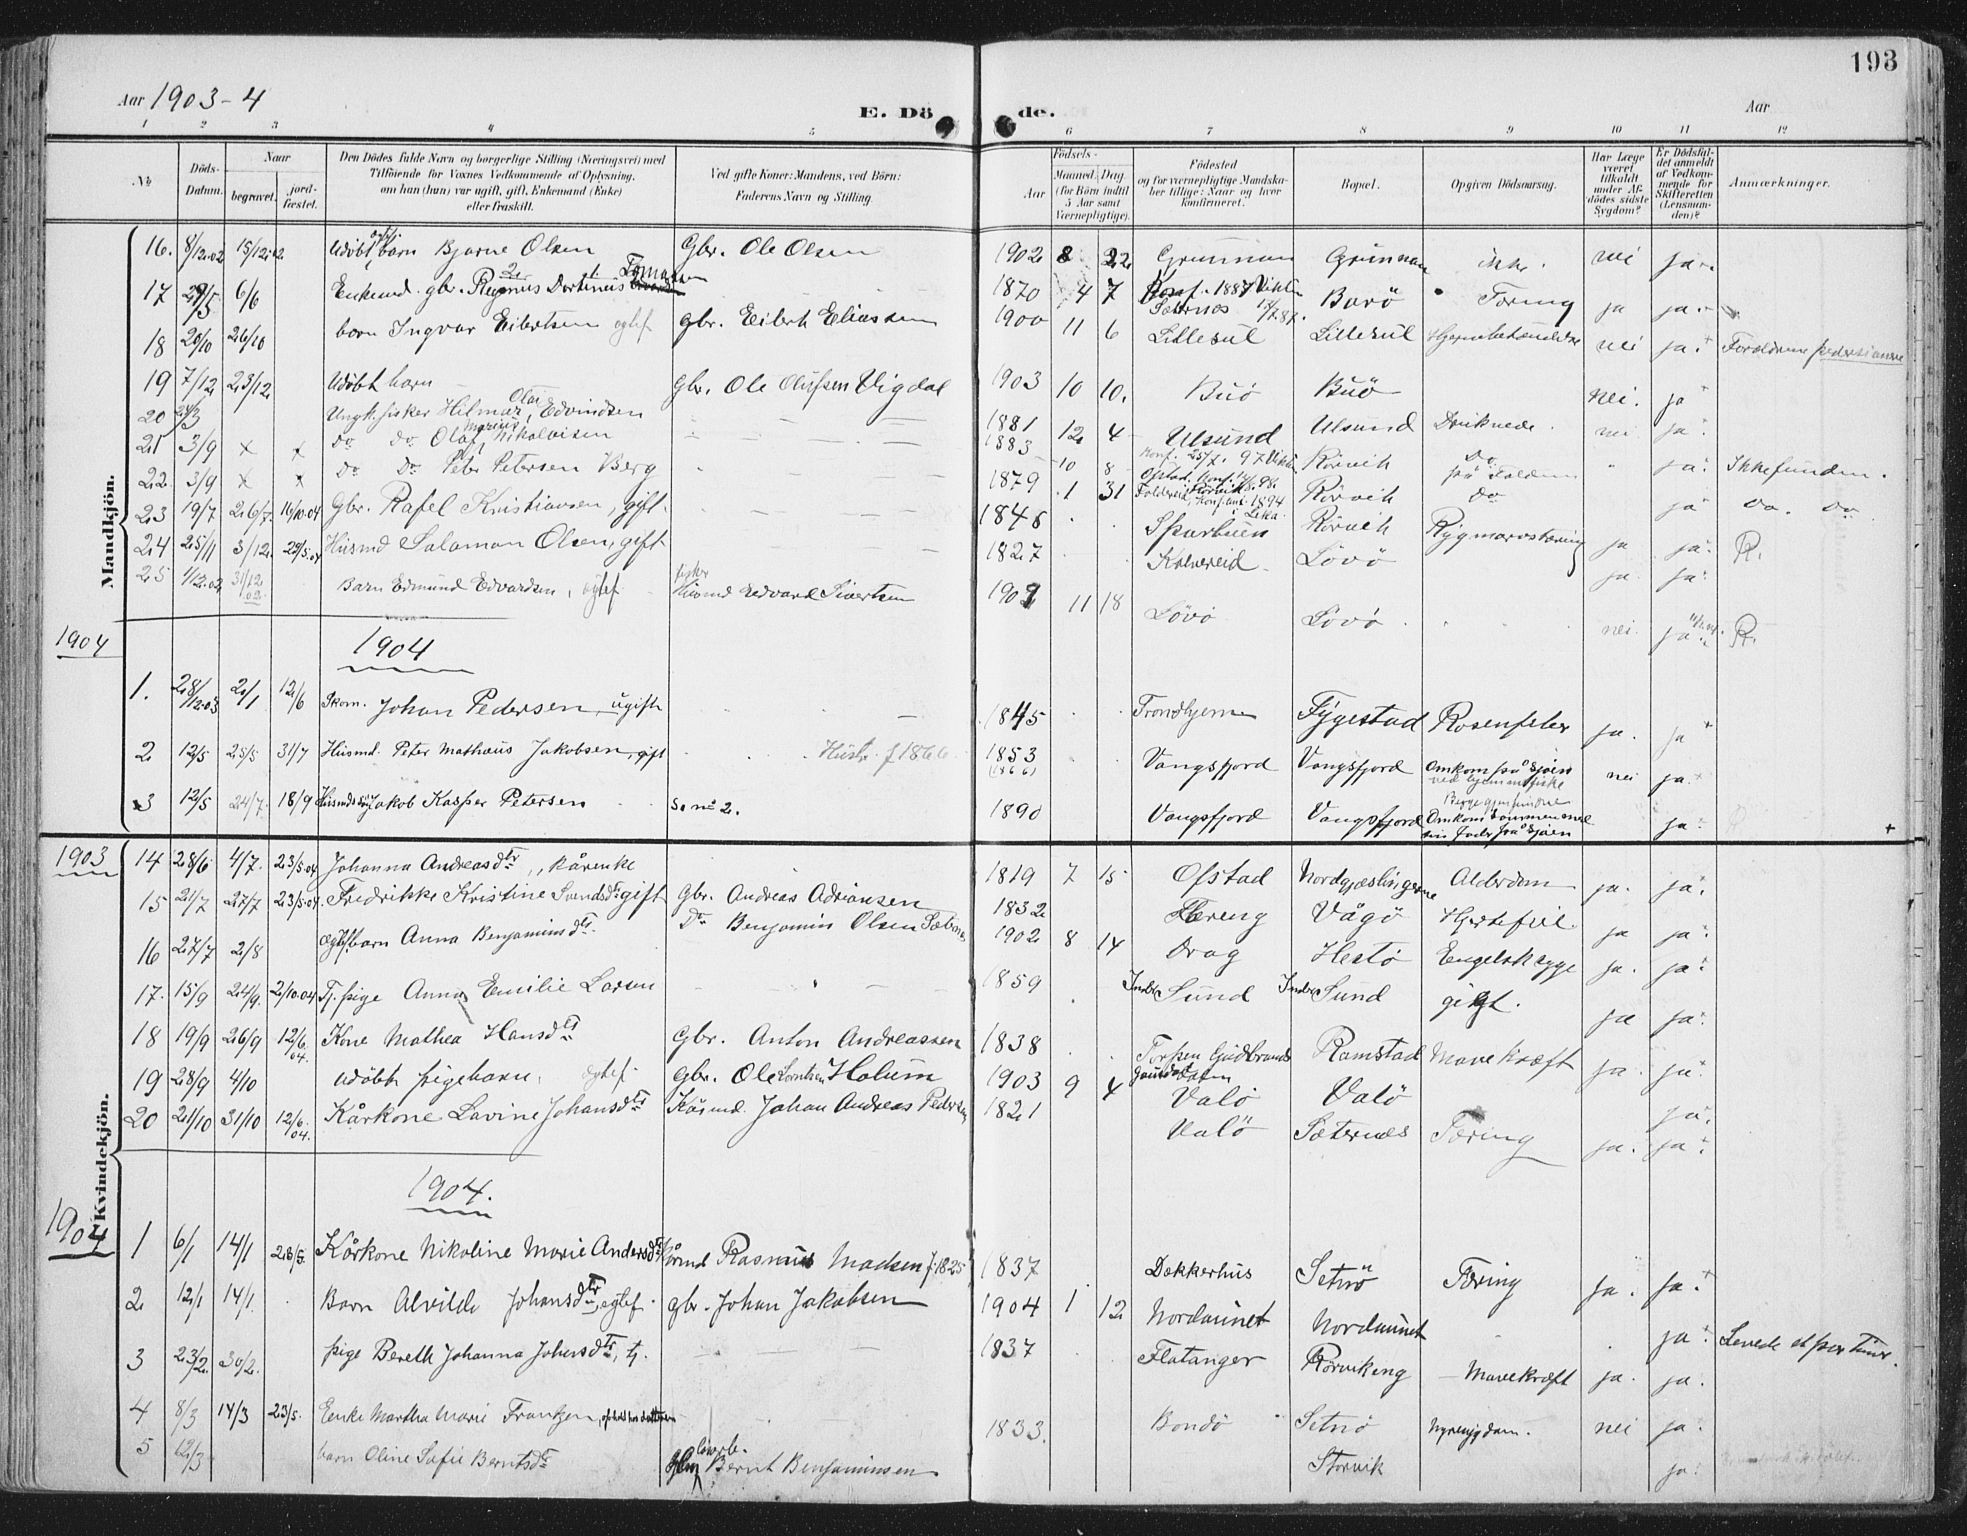 193
Aar 1903-4
E. Dö de.
Aar
1 2 3 4 5 6 7 8 9 10 11 12
No Döds-Datum. Naar begravet. jord-fæstet. Den Dödes fulde Navn og borgerlige Stilling (Næringsvei) med Tilföiende for Voxnes Vedkommende af Oplysning, om han (hun) var ugift, gift, Enkemand (Enke) eller fraskilt. Ved gifte Koner: Mandens, ved Börn: Faderens Navn og Stilling. Födsels- Aar Maaned. Dag. (for Börn indtil 5 Aar samt Værnepligtige). Födested og for værnepligtige Mandska-ber tillige: Naar og hvor konfirmeret. Bopæl. Opgiven Dödsaarsag. Har Læge været tilkaldt under Af-dödes sidste Sygdom? Er Dödsfal-det anmeldt af Vedkom-mende for Skifteretten (Lensman-den)? Anmærkninger.
Mandkjön.
16. 8/12.02 15/12.02 Udöbt barn Bjarne Olsen Gbr. Ole Olsen 1902 8 22 Grunnan Grunnan ikke. nei ja
17 29/5 6/6 Enkemd. gbr. Magnus Tomassen 1870 4 7 Konf. 1887 Sæternes Borö Tæring ja ja
18 20/10 26/10 barn Ingvar Eilertsen egtef. gbr. Eilert Eliassen 1900 11 6 Lillesul Lillesul Hjernebetændelse nei ja Forældrene
19 7/12 23/12 Udöbt barn gbr. Ole Olufsen Vigdal 1903 10 10. Buö Buö nei. ja
20 24/3 Ungk. fisker Hilmar Olai Edvindsen 1881 12 4 Ulsund Ulsund Druknede. nei ja
21 3/9 x x do do Olaf Marius Nikolaisen 1883 10 8 Rörvik Do på Folden " ja Ikke funden.
22 3/9 x x do Do Peter Petersen Berg 1879 1 31 Foldereid Rörvik do ja do. do
23 19/7 26/7 16/10.04 Gbr. Rafel Kristiansen, gift 1848 Sparbuen Rörvik Rygmarvstæring ja ja R.
24 25/11 3/12 29/5.04 Husmd Salamon Olsen, gift 1827 Kolvereid Lövö ja ja
25 4/12.02 31/12 02 Barn Edmund Edvardsen, egtef. fisker Husmd Edvard Sivertsen 1902 11 18 Lövö Lövö nei. ja R.
1904
1904
1. 28/12.03 2/1 12/6 Skom. Johan Pedersen, ugift 1845 Trondhjem Fygestad Rosenfeber ja. ja
2 12/5 25/5 31/7 Husmd. Peter Mathæus Jakobsen, gift Hustr. f 1866 1853 (1866) Vangsfjord Vangsfjord Omkom på Sjöen nei ja
3 12/5 24/7 18/9 Jakob Kasper Petersen Se no 2. 1890 Vangsfjord Vangsfjord Omkom sammen med sin Fader på Sjöen ja
Kvindekjön.
1903 14 28/6 4/7. 23/5.04 Johanna Andreasdtr, kårenke 1819 7 15 Ofstad Nordgjæslingerne Alderdom ja. ja
15 21/7 27/7 23/5.04. Fredrikke Kristine Svendsdtr gift gbr. Andreas Adriansen 1832 Færeng Vågö Hjertefeil. ja ja
16 27/7 2/8 egtef. barn Anna Benjaminsdtr. Do Benjamin Olsen 1902 8 14 Drag Hestö Engelsk syge ja. ja
17. 15/9 24/9 2/10.04 Tj. pige Anna Emilie Larsen 1859 Indre Sund Indre Sund gigt. ja ja
18 19/9 26/9 12/6 04. Kone Mathea Hansdtr gbr. Anton Andreassen 1838 Torpen Gudbrandsdalen Ramstad Mavekræft ja. ja
19 28/9 4/10 udöbt pigebarn, egtef. gbr. Ole Lorntsen Holum 1903 9 4 Valö Valö ja
20 21/10 31/10 12/6 04. Kårkone Lavine Johansdtr Kårmd. Johan Andreas Pedersen 1821 Valö Sæternæs Tæring ja. ja
1904.
1904
1 6/1 14/1 23/5. Kårkone Nikoline Marie Andersdtr Kårmd Rasmus Madsen f. 1825 1837 Dekkerhus Setnö Tæring ja. ja.
2 12/1 14/1. Barn Alvilde Johansdtr, egtef. gbr. Johan Jakobsen 1904 1 12 Nordaunet Nordaunet ja Levede et par Timer.
3 23/2 30/2. pige Bereth Johanna Johnsdtr, tj. 1837 Flatanger Mavekræft ja. ja.
4 8/3 14/3 23/5. Enke Martha Marie Frantzen, 1833. Bondö Setnö Nyresygdom. nei ja
5 12/3 barn Oline Sofie Berntsdtr Bernt Benjaminsen Storvik ja